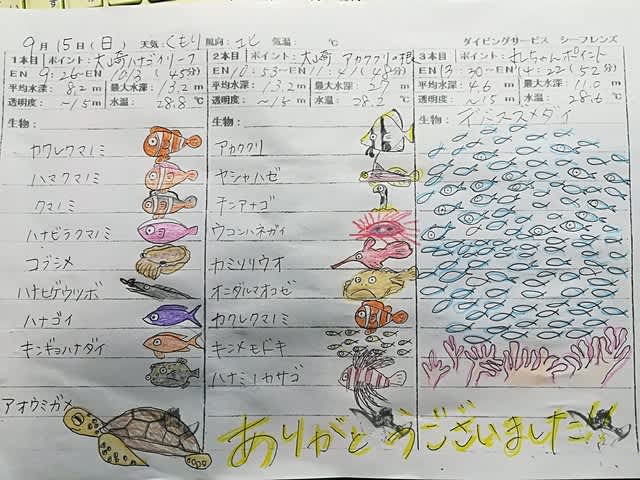 9月15日(日) 天気:くもり 風向:エヒ 気温: ℃ ダイビングサービス シーフレンズ
1本目 ポイント:大崎ハナゴイリーフ
EN 9:26-EN 10/3 (45分)
平均水深:8.2m 最大水深:13.2m
透明度:~15m 水温:28.8℃
生物:
カクレクマノミ
ハマクマノミ
クマノミ
ハナビラクマノミ
コブシメ
ハナヒゲウツボ
ハナゴイ
キンギョハナダイ
アオウミガメ
2本目 ポイント:大崎 アカククリの根
EN 10:53-EN 11:41 (48分)
平均水深:13.2m 最大水深:27m
透明度:~15m 水温:28.2℃
生物:
アカククリ
ヤシャハゼ
チンアナゴ
ウコンハネガイ
カミソリウオ
オニダルマオコゼ
カクレクマノミ
キンメモドキ
ハナミノカサゴ
3本目 ポイント:れちゃんポイント
EN 13:30-EN 14:22 (52分)
平均水深:4.6m 最大水深:11.0m
透明度:~15m 水温:28.6℃
生物:
デバスズメダイ
ありがとうございました!!